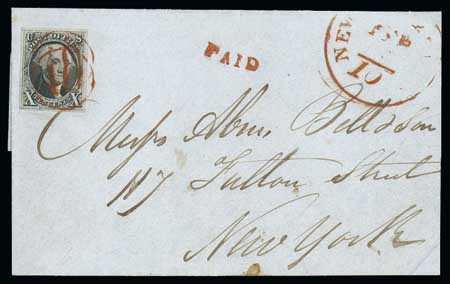 POST OFFICE
X X
PAID
NEW
FEB
10
Messrs Abm. Bell & Son
117 Fulton Street
New York